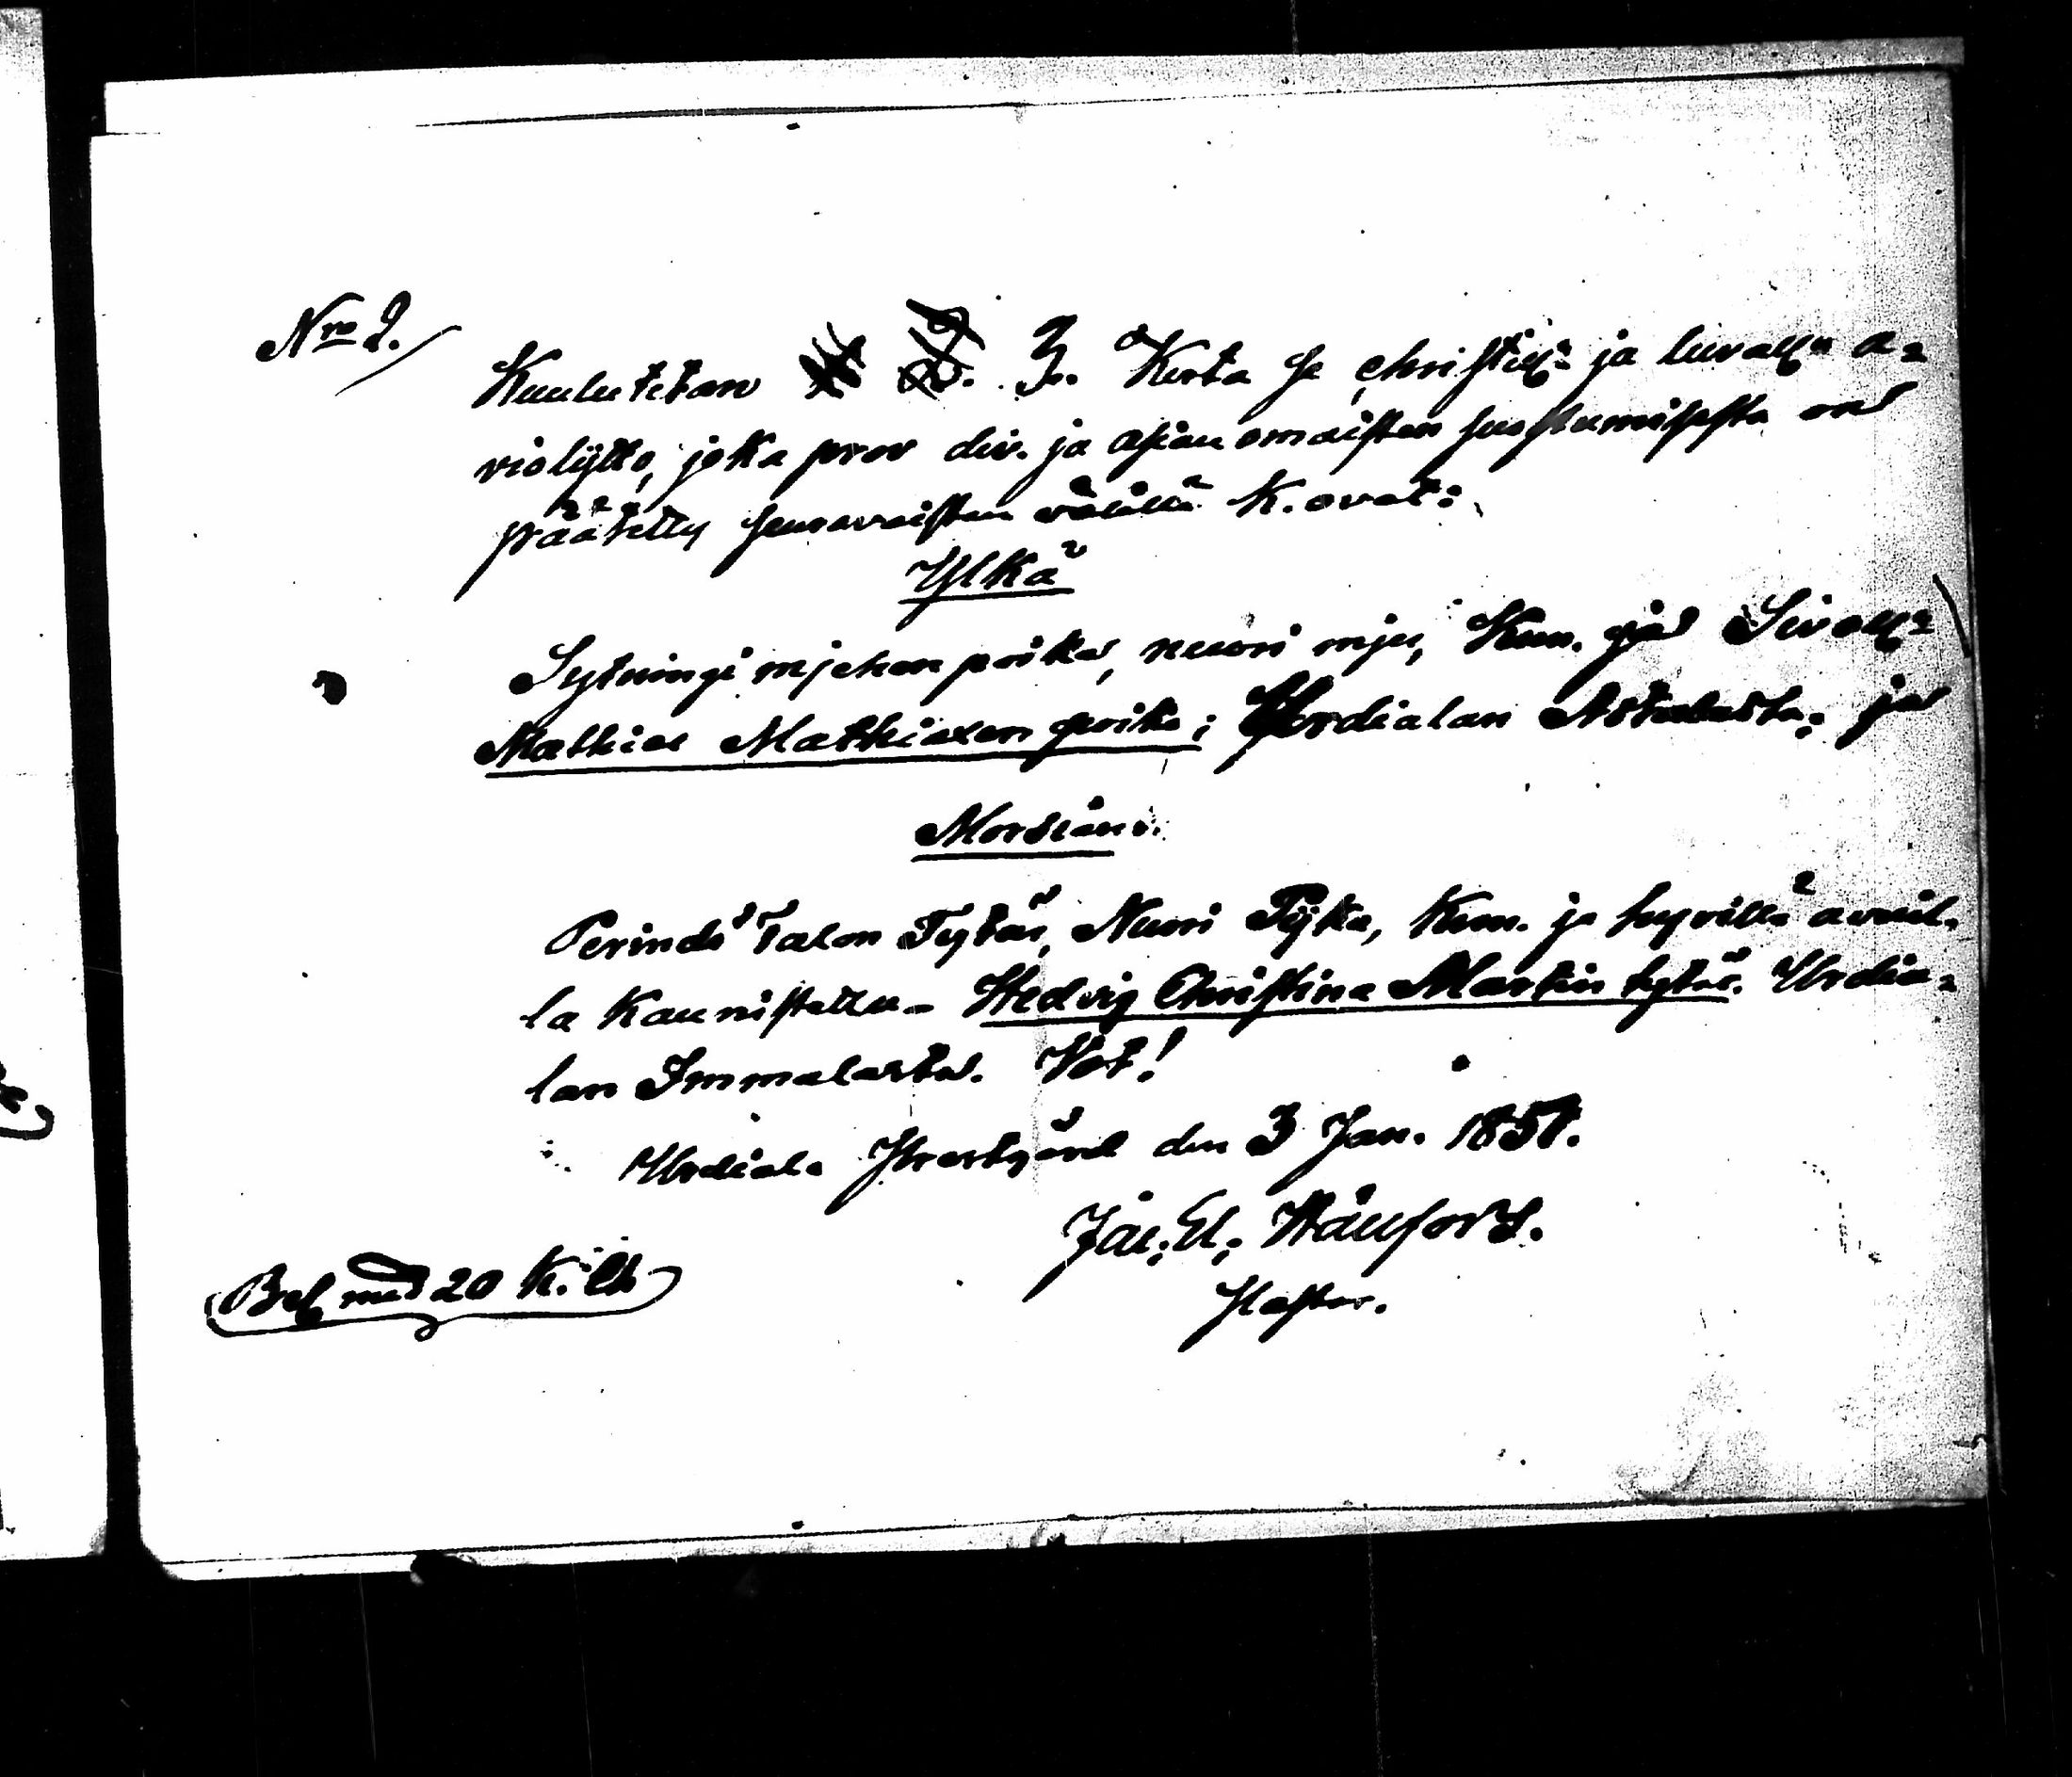 Nro 2.
Kuulutetan 3. Kerta se christill: ja luvall: a=
violijtto, joka prov div. ja asian omaisten suostumisesta on
päätetty seuravaisten välillä K. ovat:
Ylkä
Sytningi mjehen poika, nuori mjes, Kun. ja Sivall:
Mathias Mathiaxen poika; Urdialan Notulasta; ja
Morsian:
Perindö Talon Tytär, Nuori Pijka, Kun. ja hyvillä avuil=
la Kaunistettu - Hedvig Christina Martin tytär. Urdia=
lan Immalasta. Vot!
Urdiala Prestgård den 3 Jan. 1857.
Jac: El:
Pastor.
Bet. med 20 K.